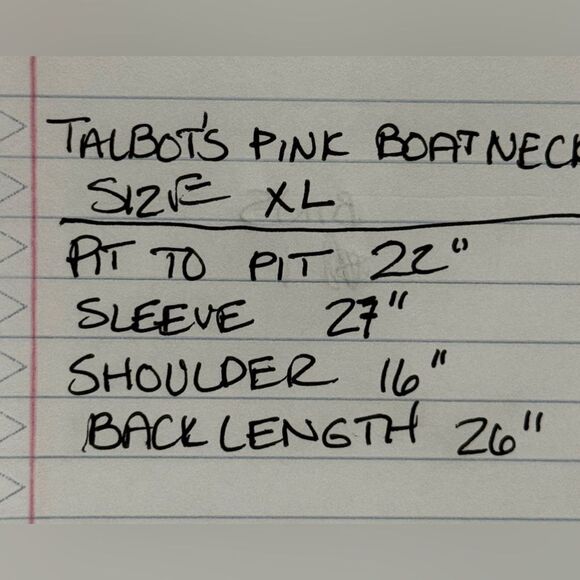 TALBOT'S PINK BOATNECK
SIZE XL
PIT TO PIT 22"
SLEEVE 27"
SHOULDER 16"
BACK LENGTH 26"